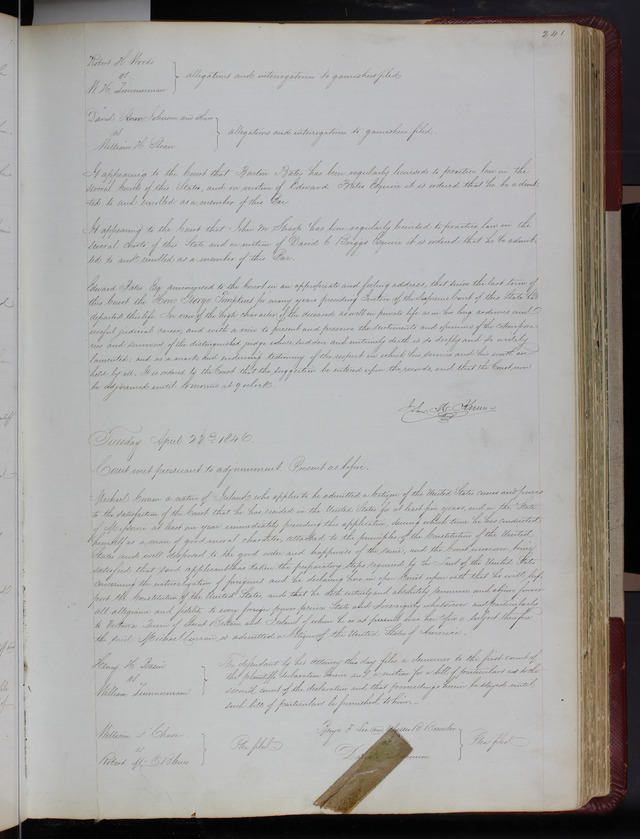 241
Robert H. Woods
vs
W. H. Zimmerman
allegations and interrogatories to garnishee filed
David
vs
William H. Sloan
allegations and interrogatories to garnishee filed.
It appearing to the Court that Barton Bates has been regularly licensed to practice law in the
several Courts of this State, and on motion of Edward Bates Esquire it is ordered that he be admit-
ted to and enrolled as a member of this Bar.
It appearing to the Court that John M. Sharp has been regularly licensed to practice law in the
several Courts of this State and on motion of David C. Briggs Esquire it is ordered that he be admit-
ted to and enrolled as a member of this Bar.
Edward Bates Esq. announced to the Court in an appropriate and feeling address, that since the last term of
this Court the Hon. George Tompkins for many years presiding Justice of the Supreme Court of this State had
departed this life. In view of the high character of the deceased as well in private life as in his long arduous and
useful judicial career, and with a view to present and preserve the sentiments and opinions of the
and of the distinguished judge whose sudden and untimely death is so deeply and so widely
lamented; and as a mark and enduring testimony of the respect in which his services and his worth are
held by all. It is ordered by the Court that the suggestion be entered upon the records, and that the Court now
be adjourned until tomorrow at 9 o'clock.
John M. Krum
Tuesday April 1846.
Court met pursuant to adjournment. Present as before.
Michael Curran a native of Ireland who applies to be admitted a Citizen of the United States comes and proves
to the satisfaction of the Court that he has resided in the United States for at least five years, and in the State
of Missouri at least one year immediately preceding this application, during which time he has conducted
himself as a man of good moral character, attached to the principles of the Constitution of the United
States and well disposed to the good order and happiness of the same, and the Court moreover being
satisfied that said applicant has taken the preparatory steps required by the laws of the United States
concerning the naturalization of foreigners and he declaring here in open Court upon oath that he will sup-
port the Constitution of the United States, and that he doth entirely and absolutely renounce and abjure forever
all allegiance and fidelity to every foreign power prince State and Sovereignty whatsoever and particularly
to Victoria Queen of Great Britain and Ireland of whom he is at present a subject therefore
the said Michael Curran is admitted a Citizen of the United States of America.
Henry H.
vs
William Zimmerman
The defendant by his attorney this day files a demurrer to the first count of
the plaintiffs declaration herein and a motion for a bill of particulars as to the
second count of the declaration and that proceedings herein be stayed until
such bill of particulars be furnished to him.
William F. Chase
vs
Robert M.
Plea filed
Plea filed